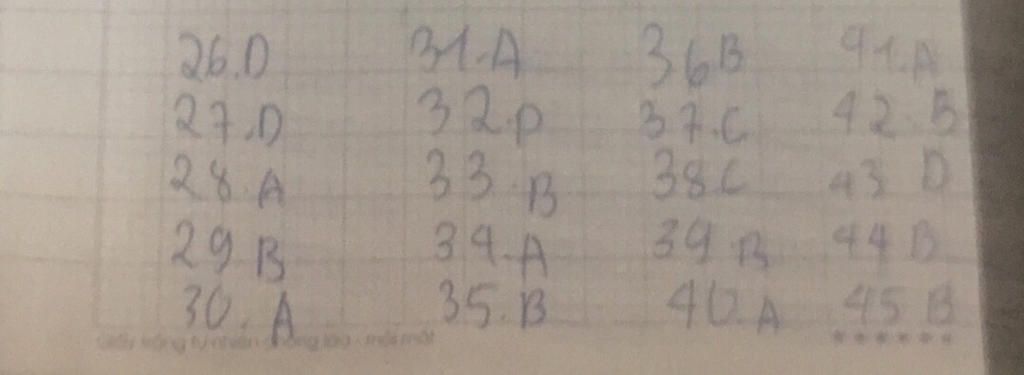 26.D 31.A 36B 41.A
27.D 32.D 37.C 42.B
28.A 33.B 38.C 43 D
29 B 34.A 39.B 44 B
30.A 35.B 40.A 45 B
Giấy trắng tự nhiên chống lóa - mỏi mắt